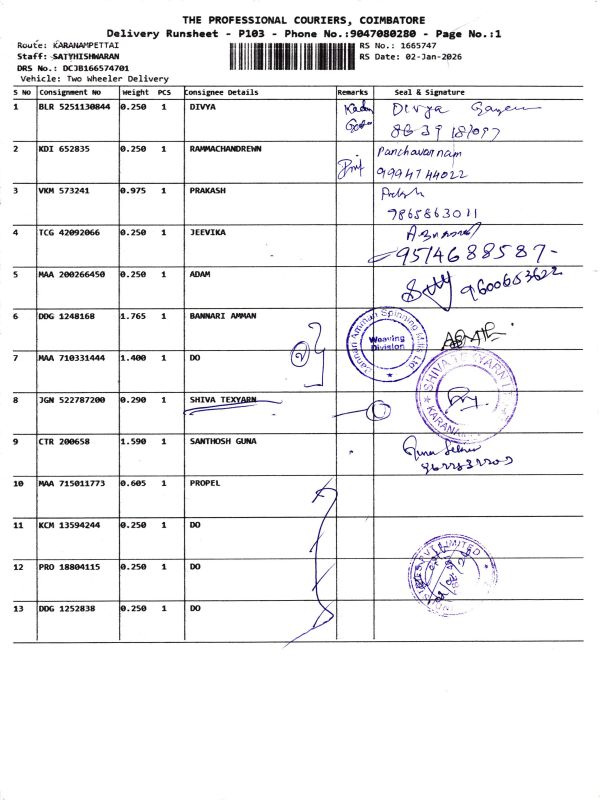 THE PROFESSIONAL COURIERS, COIMBATORE
Delivery Runsheet - P103 - Phone No.:9047080280 - Page No.:1
Route: KARANAMPETTAI RS No.: 1665747
Staff: SATYHISHWARAN RS Date: 02-Jan-2026
DRS No.: DCJB166574701
Vehicle: Two Wheeler Delivery
S No Consignment No Weight PCS Consignee Details Remarks Seal & Signature
1 BLR 5251130844 0.250 1 DIVYA Divya
2 KDI 652835 0.250 1 RAMMACHANDREWN Panchavarnam
9994744022
3 VKM 573241 0.975 1 PRAKASH
9865863011
4 TCG 42092066 0.250 1 JEEVIKA
9514688587-
5 MAA 200266450 0.250 1 ADAM 9600653622
6 DDG 1248168 1.765 1 BANNARI AMMAN Bannari Amman Spinning Mills Ltd
Weaving
Division
7 MAA 710331444 1.400 1 DO
8 JGN 522787200 0.290 1 SHIVA TEXYARN SHIVA TEXYARN LTD
9 CTR 200658 1.590 1 SANTHOSH GUNA
10 MAA 715011773 0.605 1 PROPEL
11 KCM 13594244 0.250 1 DO
12 PRO 18804115 0.250 1 DO PVT LIMITED
13 DDG 1252838 0.250 1 DO